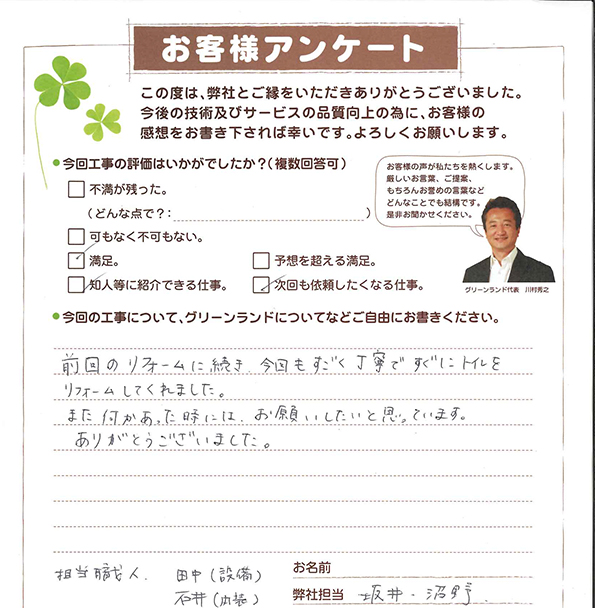 お客様アンケート
この度は、弊社とご縁をいただきありがとうございました。
今後の技術及びサービスの品質向上の為に、お客様の
感想をお書き下されば幸いです。よろしくお願いします。
今回工事の評価はいかがでしたか?(複数回答可)
不満が残った。
(どんな点で?: )
可もなく不可もない。
満足。
予想を超える満足。
知人等に紹介できる仕事。
次回も依頼したくなる仕事。
お客様の声が私たちを熱くします。
厳しいお言葉、ご提案、
もちろんお誉めの言葉など
どんなことでも結構です。
是非お聞かせください。
グリーンランド代表 川村秀之
今回の工事について、グリーンランドについてなどご自由にお書きください。
前回のリフォームに続き、今回もすごく丁寧ですぐにトイレを
リフォームしてくれました。
また何かあった時には、お願いしたいと思っています。
ありがとうございました。
担当職人. 田中(設備)
石井(内装)
お名前
弊社担当 坂井・沼野.